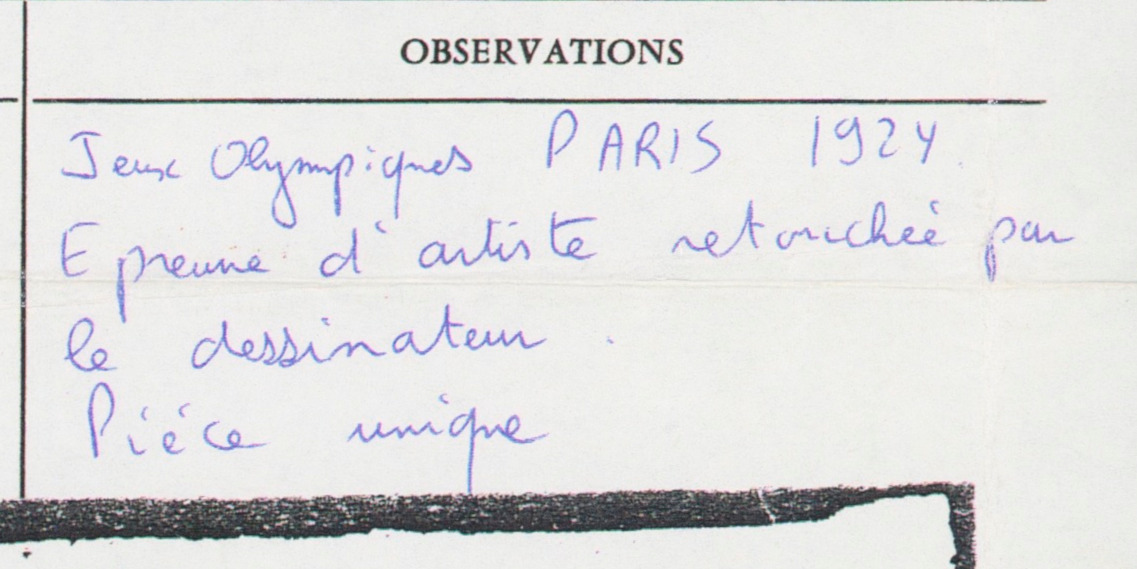 OBSERVATIONS
Jeux Olympiques PARIS 1924
Epreuve d'artiste retouchée par
le dessinateur.
Piéce unique